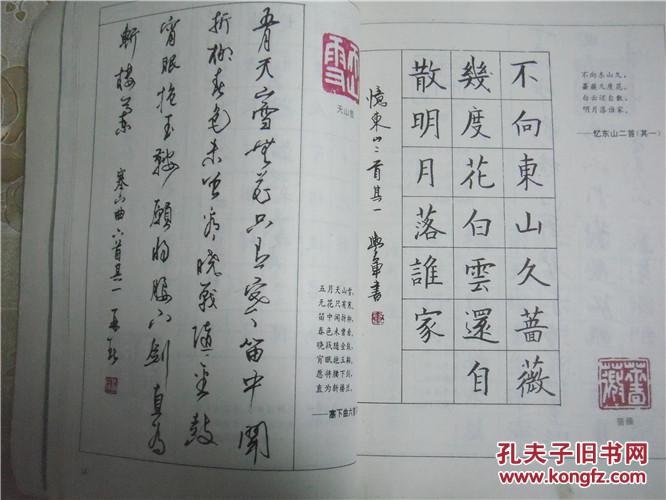 五月天山雪無花只有寒笛中聞
折柳春色未曾看曉戰隨金鼓
宵眠抱玉鞍願將腰下劍直為
斬樓蘭
塞山曲六首其一
天山雪
天山
五月天山雪，
无花只有寒。
笛中闻折柳，
春色未曾看。
晓战随金鼓，
宵眠抱玉鞍。
愿将腰下剑，
直为斩楼兰。
——塞下曲六首
不向東山久薔薇
幾度花白雲還自
散明月落誰家
憶東山二首其一
書
不向东山久，
蔷薇几度花。
白云还自散，
明月落谁家。
——忆东山二首(其一)
薔薇
蔷薇
孔夫子旧书网
KONGFZ.COM